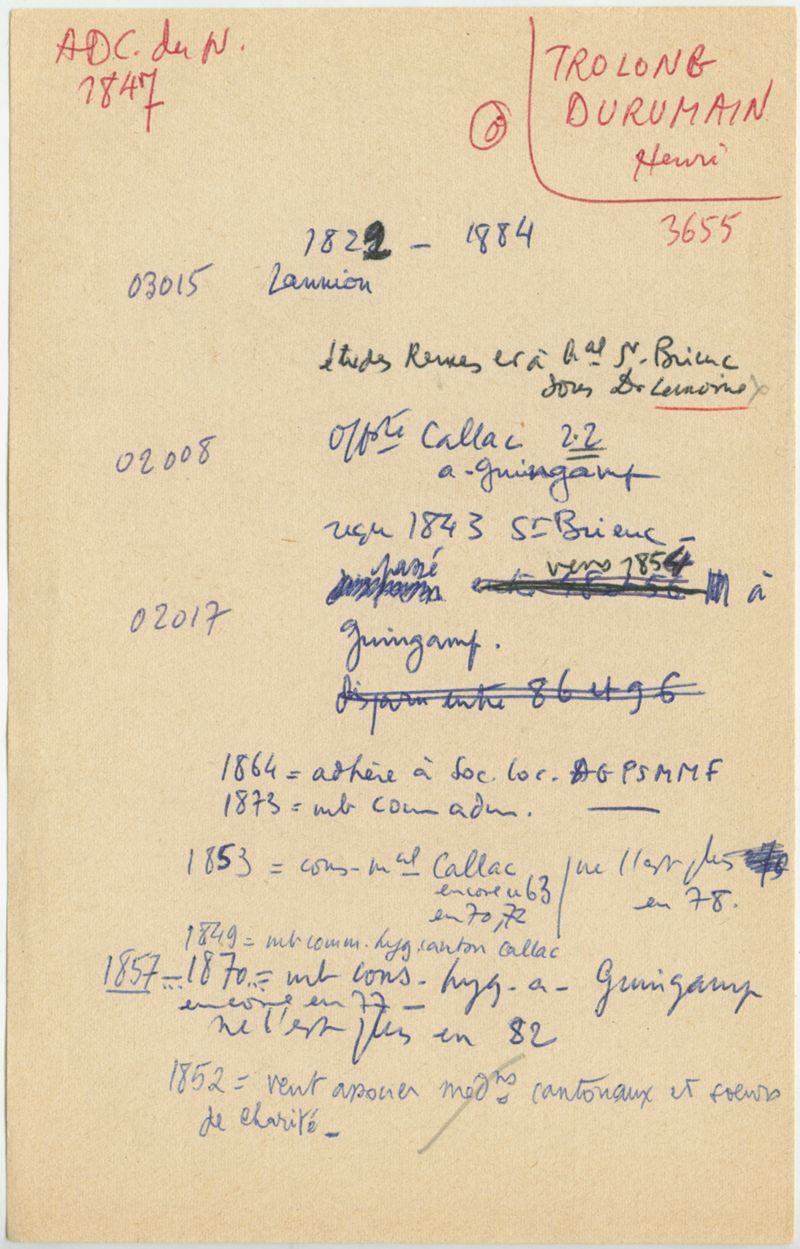 ADC. du N.
1847
TROLONG
DURUMAIN
Henri
3655
1822 - 1884
03015 Lannion
études Rennes et à hal St-Brieuc
sous Dr Lemoine
02008 Callac 2.2
a-Guingamp
reçu 1843 St Brieuc -
passé vers 1854 à
02017
Guingamp.
Disparu entre 86 et 96
1864 = adhère à Soc. loc. AGPSMMF
1873 = mb com adm. ———
1853 = cons-mal Callac
encore en 63
en 70, 72
ne l'est plus
en 78.
1849 = mb comm. hyg. canton Callac
1857 - 1870 = mb cons- hyg- a- Guingamp
encore en 77 -
ne l'est plus en 82
1852 = veut associer medns cantonaux et soeurs
de Charité -